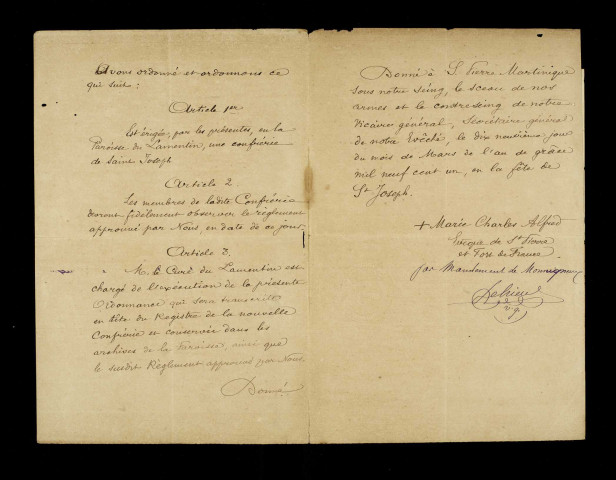 Avons ordonné et ordonnons ce
qui suit :
Article 1er
Est érigée, par les présentes, en la
Paroisse du Lamentin, une confrérie
de Saint Joseph
Article 2
Les membres de ladite Confrérie
devront fidèlement observer le règlement
approuvé par Nous, en date de ce jour.
Article 3.
M. le Curé du Lamentin est
chargé de l'exécution de la présente
Ordonnance qui sera transcrite
en tête du Registre de la nouvelle
Confrérie et conservée dans les
archives de la Paroisse, ainsi que
le susdit Règlement approuvé par Nous.
Donné
Donné à St Pierre Martinique
sous notre seing, le sceau de nos
armes et le contreseing de notre
Vicaire général, Secrétaire général
de notre Evêché, le dix neuvième jour
du mois de Mars de l'an de grâce
mil neuf cent un, en la fête de
St Joseph.
+ Marie Charles Alfred
Evêque de St Pierre
et Fort de France
par Mandement de Monseigneur
v. g.